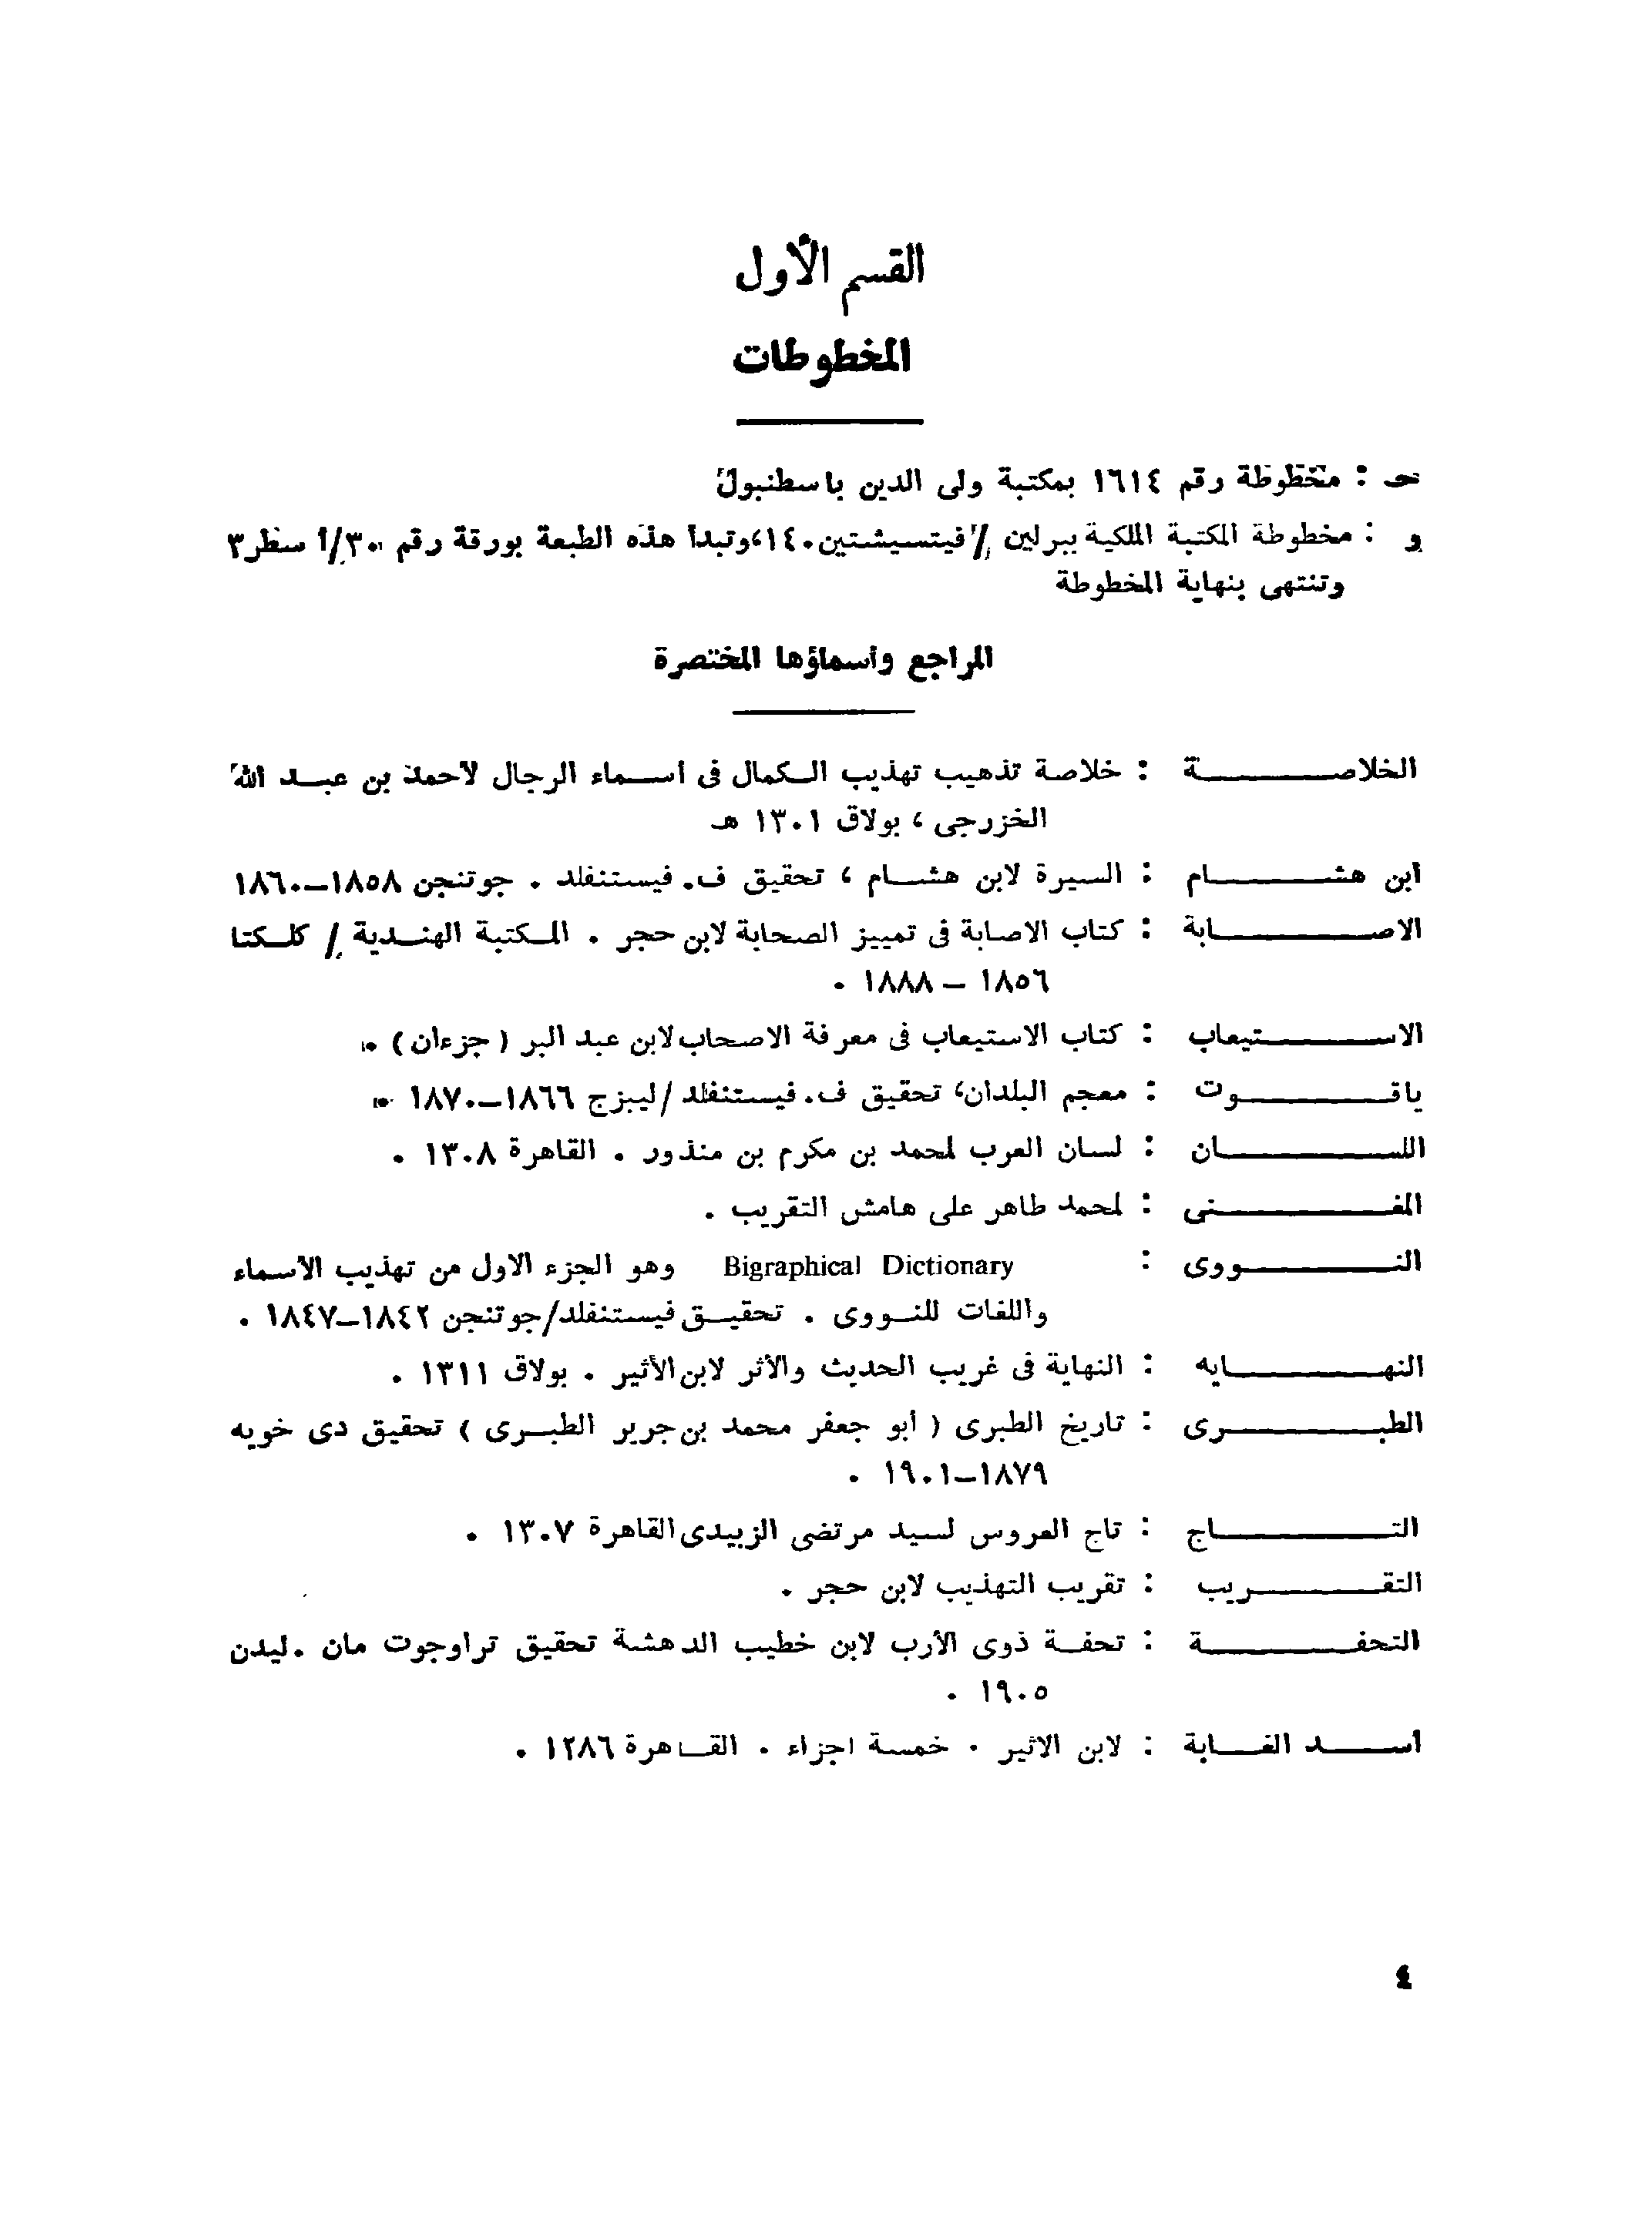 القسم الأول
المخطوطات
حـ : مخطوطة رقم ١٦١٤ بمكتبة ولى الدين باسطنبول
و : مخطوطة المكتبة الملكية ببرلين / فيتسيشتين ١٤٠، وتبدأ هذه الطبعة بورقة رقم ٣٠/أ سطر ٣
وتنتهى بنهاية المخطوطة
المراجع وأسماؤها المختصرة
الخلاصة : خلاصة تذهيب تهذيب الكمال فى أسماء الرجال لأحمد بن عبد الله
الخزرجى ، بولاق ١٣٠١ هـ
ابن هشام : السيرة لابن هشام ، تحقيق ف. فيستنفلد . جوتنجن ١٨٥٨–١٨٦٠
الاصابة : كتاب الاصابة فى تمييز الصحابة لابن حجر . المكتبة الهندية / كلكتا
١٨٥٦ – ١٨٨٨ .
الاستيعاب : كتاب الاستيعاب فى معرفة الاصحاب لابن عبد البر ( جزءان ) .
ياقوت : معجم البلدان، تحقيق ف. فيستنفلد / ليبزج ١٨٦٦–١٨٧٠ .
اللسان : لسان العرب لمحمد بن مكرم بن منذور . القاهرة ١٣٠٨ .
المغنى : لمحمد طاهر على هامش التقريب .
النووى : Bigraphical Dictionary وهو الجزء الاول من تهذيب الاسماء
واللغات للنووى . تحقيق فيستنفلد/جوتنجن ١٨٤٢–١٨٤٧ .
النهايه : النهاية فى غريب الحديث والأثر لابن الأثير . بولاق ١٣١١ .
الطبرى : تاريخ الطبرى ( أبو جعفر محمد بن جرير الطبرى ) تحقيق دى خويه
١٨٧٩–١٩٠١ .
التاج : تاج العروس لسيد مرتضى الزبيدى القاهرة ١٣٠٧ .
التقريب : تقريب التهذيب لابن حجر .
التحفة : تحفة ذوى الأرب لابن خطيب الدهشة تحقيق تراوجوت مان . ليدن
١٩٠٥ .
اسد الغابة : لابن الاثير . خمسة اجزاء . القاهرة ١٢٨٦ .
٤